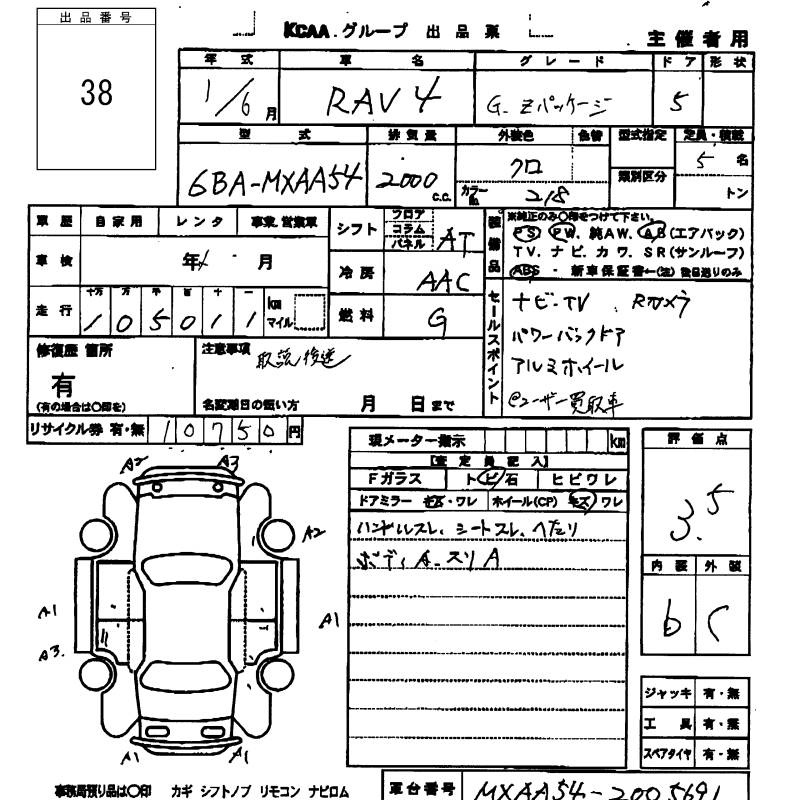 出品番号
38
KCAA.グループ 出品票
主催者用
年式 車名 グレード ドア 形状
1/6月 RAV4 G.Zパッケージ 5
型式 排気量 外装色 色替 型式指定 定員・積載
類別区分
6BA-MXAA54 2000 c.c. クロ 5 名
カラーNo. 218 トン
車歴 自家用 レンタ 事業.営業車
車検 年 月
走行 十万 万 千 百 十 一 km
105011 マイル
シフト フロア コラム パネル AT
冷房 AAC
燃料 G
装備品
※純正のみ○印をつけて下さい。
PS. PW. 純AW. AB(エアバック)
TV. ナビ. カワ. SR(サンルーフ)
ABS - 新車保証書←(注) 後日送りのみ
セールスポイント
ナビ・TV Rカメラ
パワーバックドア
アルミホイール
@ユーザー買取車
修復歴 箇所
有
(有の場合は○印を)
注意事項 取説後送
名変期日の扱い方 月 日まで
リサイクル券 有・無 10750円
現メーター指示 km
【査定員記入】
Fガラス トビ石 ヒビワレ
ドアミラー キズ・ワレ ホイール(CP) キズ ワレ
ハンドルスレ、シートスレ、ヘタリ
ボディA.スリA
評価点
3.5
内装 外装
b C
ジャッキ 有・無
工具 有・無
スペアタイヤ 有・無
A2 A3
A2
A1 A1
A3.
A1 A1
事務局預り品は○印 カギ シフトノブ リモコン ナビロム
車台番号 MXAA54-2005691